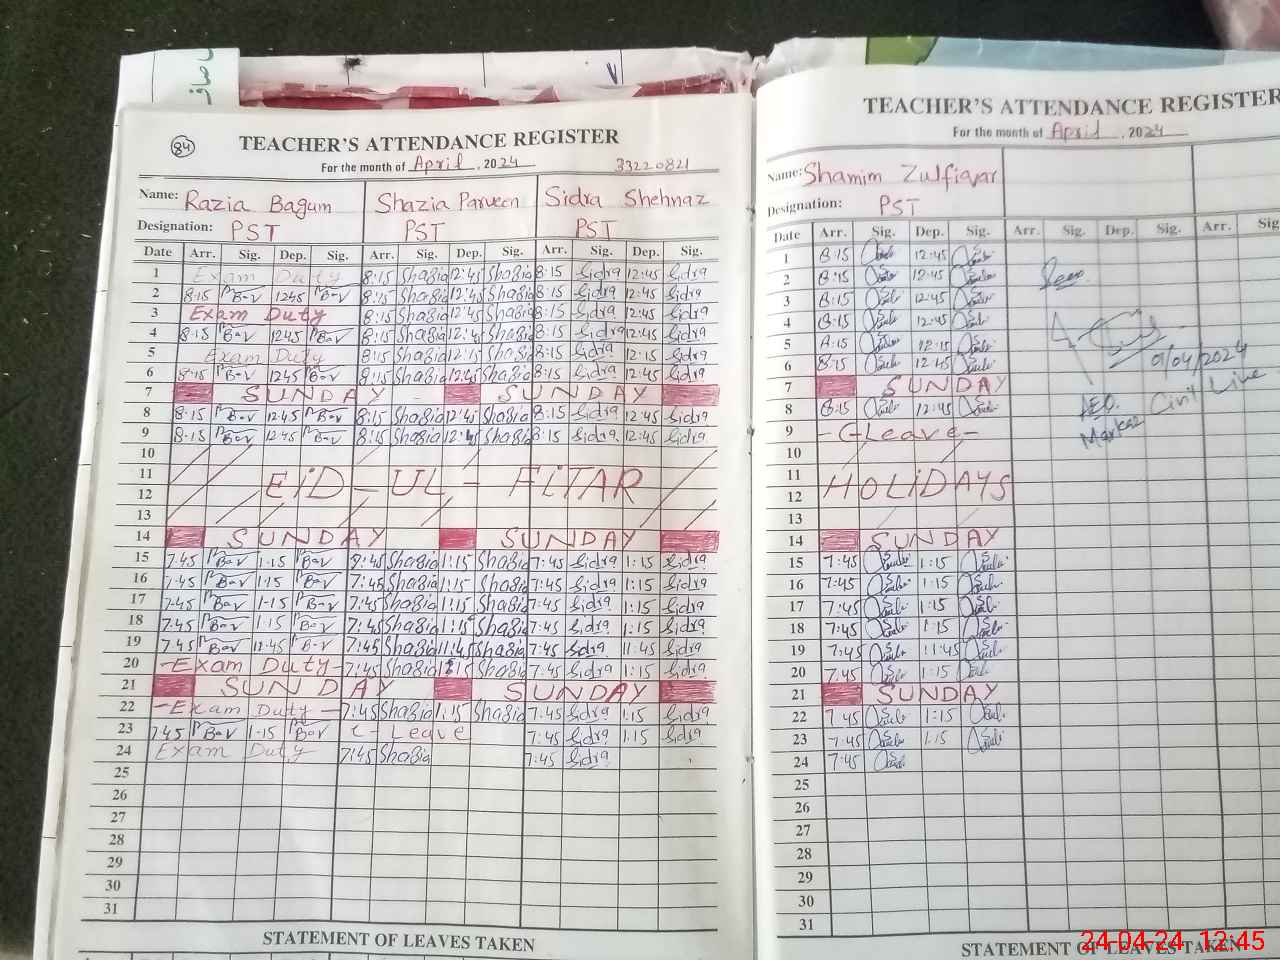 صاف
84
TEACHER'S ATTENDANCE REGISTER
For the month of April, 2024 33220821
Name: Razia Bagum Shazia Parveen Sidra Shehnaz
Designation: PST PST PST
Date Arr. Sig. Dep. Sig. Arr. Sig. Dep. Sig. Arr. Sig. Dep. Sig.
1 Exam Duty 8:15 Shazia 12:45 Shazia 8:15 Sidra 12:45 Sidra
2 8:15 1245 8:15 Shazia 12:45 Shazia 8:15 Sidra 12:45 Sidra
3 Exam Duty 8:15 Shazia 12:45 Shazia 8:15 Sidra 12:45 Sidra
4 8:15 1245 8:15 Shazia 12:45 Shazia 8:15 Sidra 12:45 Sidra
5 Exam Duty 8:15 Shazia 12:15 Shazia 8:15 Sidra 12:15 Sidra
6 8:15 1245 8:15 Shazia 12:45 Shazia 8:15 Sidra 12:45 Sidra
7 SUNDAY SUNDAY
8 8:15 12:45 8:15 Shazia 12:45 Shazia 8:15 Sidra 12:45 Sidra
9 8:15 1245 8:15 Shazia 12:45 Shazia 8:15 Sidra 12:45 Sidra
10
11 EID-UL-FITAR
12
13
14 SUNDAY SUNDAY
15 7:45 1:15 Shazia 1:15 Shazia 7:45 Sidra 1:15 Sidra
16 7:45 1:15 7:45 Shazia 1:15 Shazia 7:45 Sidra 1:15 Sidra
17 7:45 1-15 7:45 Shazia 1:15 Shazia 7:45 Sidra 1:15 Sidra
18 7:45 1-15 7:45 Shazia 1:15 Shazia 7:45 Sidra 1:15 Sidra
19 7:45 12:45 7:45 Shazia 11:45 Shazia 7:45 Sidra 11:45 Sidra
20 -Exam Duty- 7:45 Shazia 1:15 Shazia 7:45 Sidra 1:15 Sidra
21 SUNDAY SUNDAY
22 -Exam Duty- 7:45 Shazia 1:15 Shazia 7:45 Sidra 1:15 Sidra
23 7:45 1-15 C-Leave 7:45 Sidra 1:15 Sidra
24 Exam Duty 7:45 Shazia 7:45 Sidra
25
26
27
28
29
30
31
STATEMENT OF LEAVES TAKEN
TEACHER'S ATTENDANCE REGISTER
For the month of April, 2024
Name: Shamim Zulfiqar
Designation: PST
Date Arr. Sig. Dep. Sig. Arr. Sig. Dep. Sig. Arr.
1 8:15 12:45
2 8:15 12:45
3 8:15 12:45
4 8:15 12:45
5 8:15 12:15
6 8:15 12:45
01/04/2024
7 SUNDAY
8 8:15 12:45
AEO
Markaz Civil Line
9 -C-Leave-
10
11
12 HOLIDAYS
13
14 SUNDAY
15 7:45 1:15
16 7:45 1:15
17 7:45 1:15
18 7:45 1:15
19 7:45 11:45
20 7:45 1:15
21 SUNDAY
22 7:45 1:15
23 7:45 1:15
24 7:45
25
26
27
28
29
30
31
STATEMENT OF LEAVES TAKEN
24-04-24 12:45